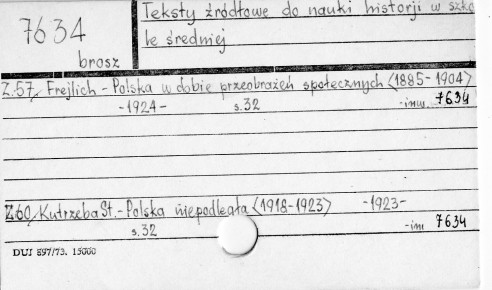 7634
brosz
Teksty źródłowe do nauki historji w szko
le średniej
Z.57, Frejlich - Polska w dobie przeobrażeń społecznych <1885-1904>
-1924- s.32 -inw. 7634
Z.60, Kutrzeba St. - Polska niepodległa <1918-1923> -1923-
s.32 -inw 7634
DUJ 897/73. 15000